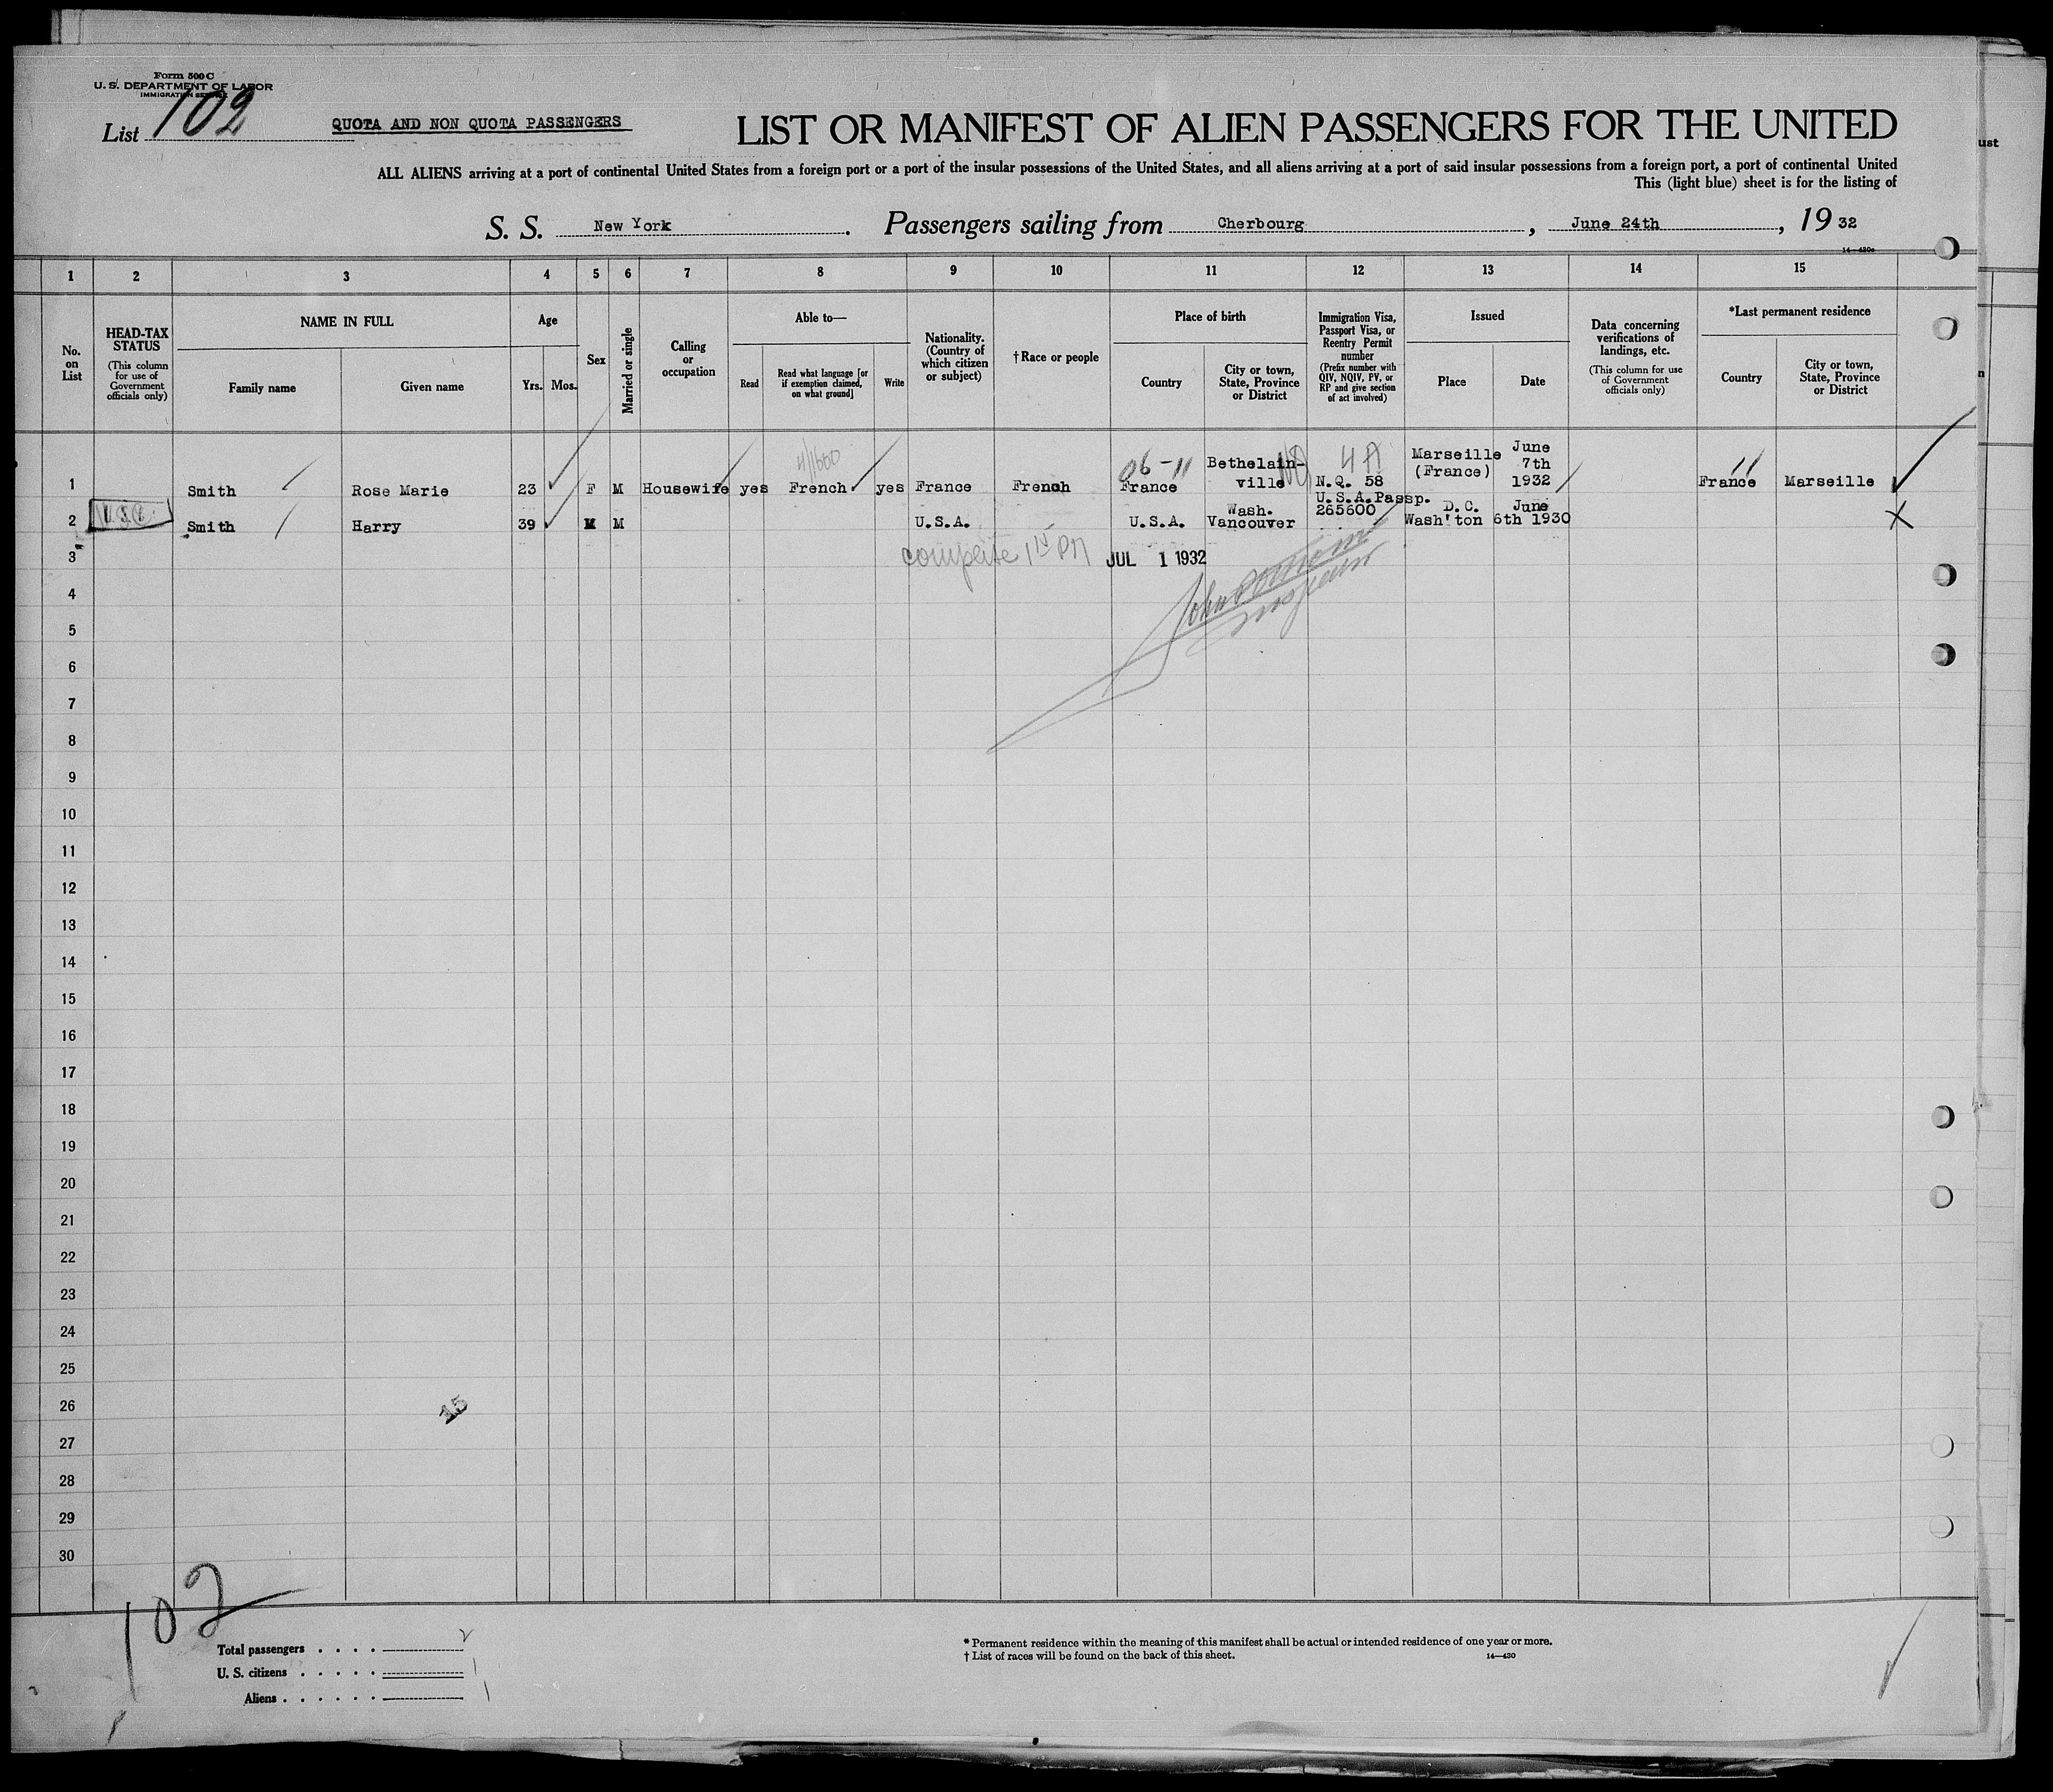 Form 500 C
U. S. DEPARTMENT OF LABOR
IMMIGRATION SERVICE
List 102
QUOTA AND NON QUOTA PASSENGERS
LIST OR MANIFEST OF ALIEN PASSENGERS FOR THE UNITED
ALL ALIENS arriving at a port of continental United States from a foreign port or a port of the insular possessions of the United States, and all aliens arriving at a port of said insular possessions from a foreign port, a port of continental United
This (light blue) sheet is for the listing of
S. S. New York. Passengers sailing from Cherbourg, June 24th, 1932
14—430c
1 2 3 4 5 6 7 8 9 10 11 12 13 14 15
No. on List
HEAD-TAX STATUS
(This column for use of Government officials only)
NAME IN FULL
Family name
Given name
Age
Yrs.
Mos.
Sex
Married or single
Calling or occupation
Able to—
Read
Read what language [or if exemption claimed, on what ground]
Write
Nationality. (Country of which citizen or subject)
†Race or people
Place of birth
Country
City or town, State, Province or District
Immigration Visa, Passport Visa, or Reentry Permit number
(Prefix number with QIV, NQIV, PV, or RP and give section of act involved)
Issued
Place
Date
Data concerning verifications of landings, etc.
(This column for use of Government officials only)
*Last permanent residence
Country
City or town, State, Province or District
1 Smith Rose Marie 23 F M Housewife yes French yes France French 06-11 France Bethelain-ville 4 A N.Q. 58 Marseille (France) June 7th 1932 France Marseille
2 U.S.C. Smith Harry 39 M M U.S.A. U.S.A. Wash. Vancouver U.S.A. Passp. 265600 D.C. Wash'ton June 6th 1930
3 JUL 1 1932
4
5
6
7
8
9
10
11
12
13
14
15
16
17
18
19
20
21
22
23
24
25
26 15
27
28
29
30
102
Total passengers . . . . 2
U. S. citizens . . . . . 1
Aliens . . . . . . 1
* Permanent residence within the meaning of this manifest shall be actual or intended residence of one year or more.
† List of races will be found on the back of this sheet.
14—430
ust
n